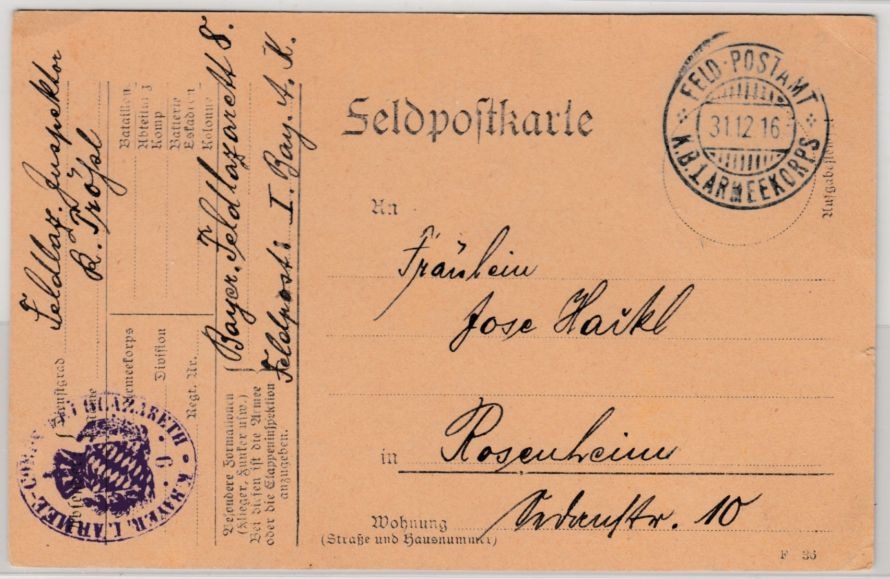 Feldpostkarte
FELD-POSTAMT
31.12.16
K.B.1.ARMEEKORPS
An
Fräulein
Jose Haikl
in
Rosenheim
Sedanstr. 10
Wohnung
(Straße und Hausnummer)
F 36
Feldlaz. Inspektor
R. Trößl
Bataillon
Abteilung
Komp
Batterie
Eskadron
Kolonne
Dienstgrad
Armeekorps
Division
Regt. Nr.
Bayer. Feldlazarett 8.
Feldpost: I. Bay. A. K.
Besondere Formationen
(Flieger, Funker usw.)
Bei diesen ist die Armee
oder die Etappeninspektion
anzugeben.
K.BAYER. I. ARMEE-CORPS